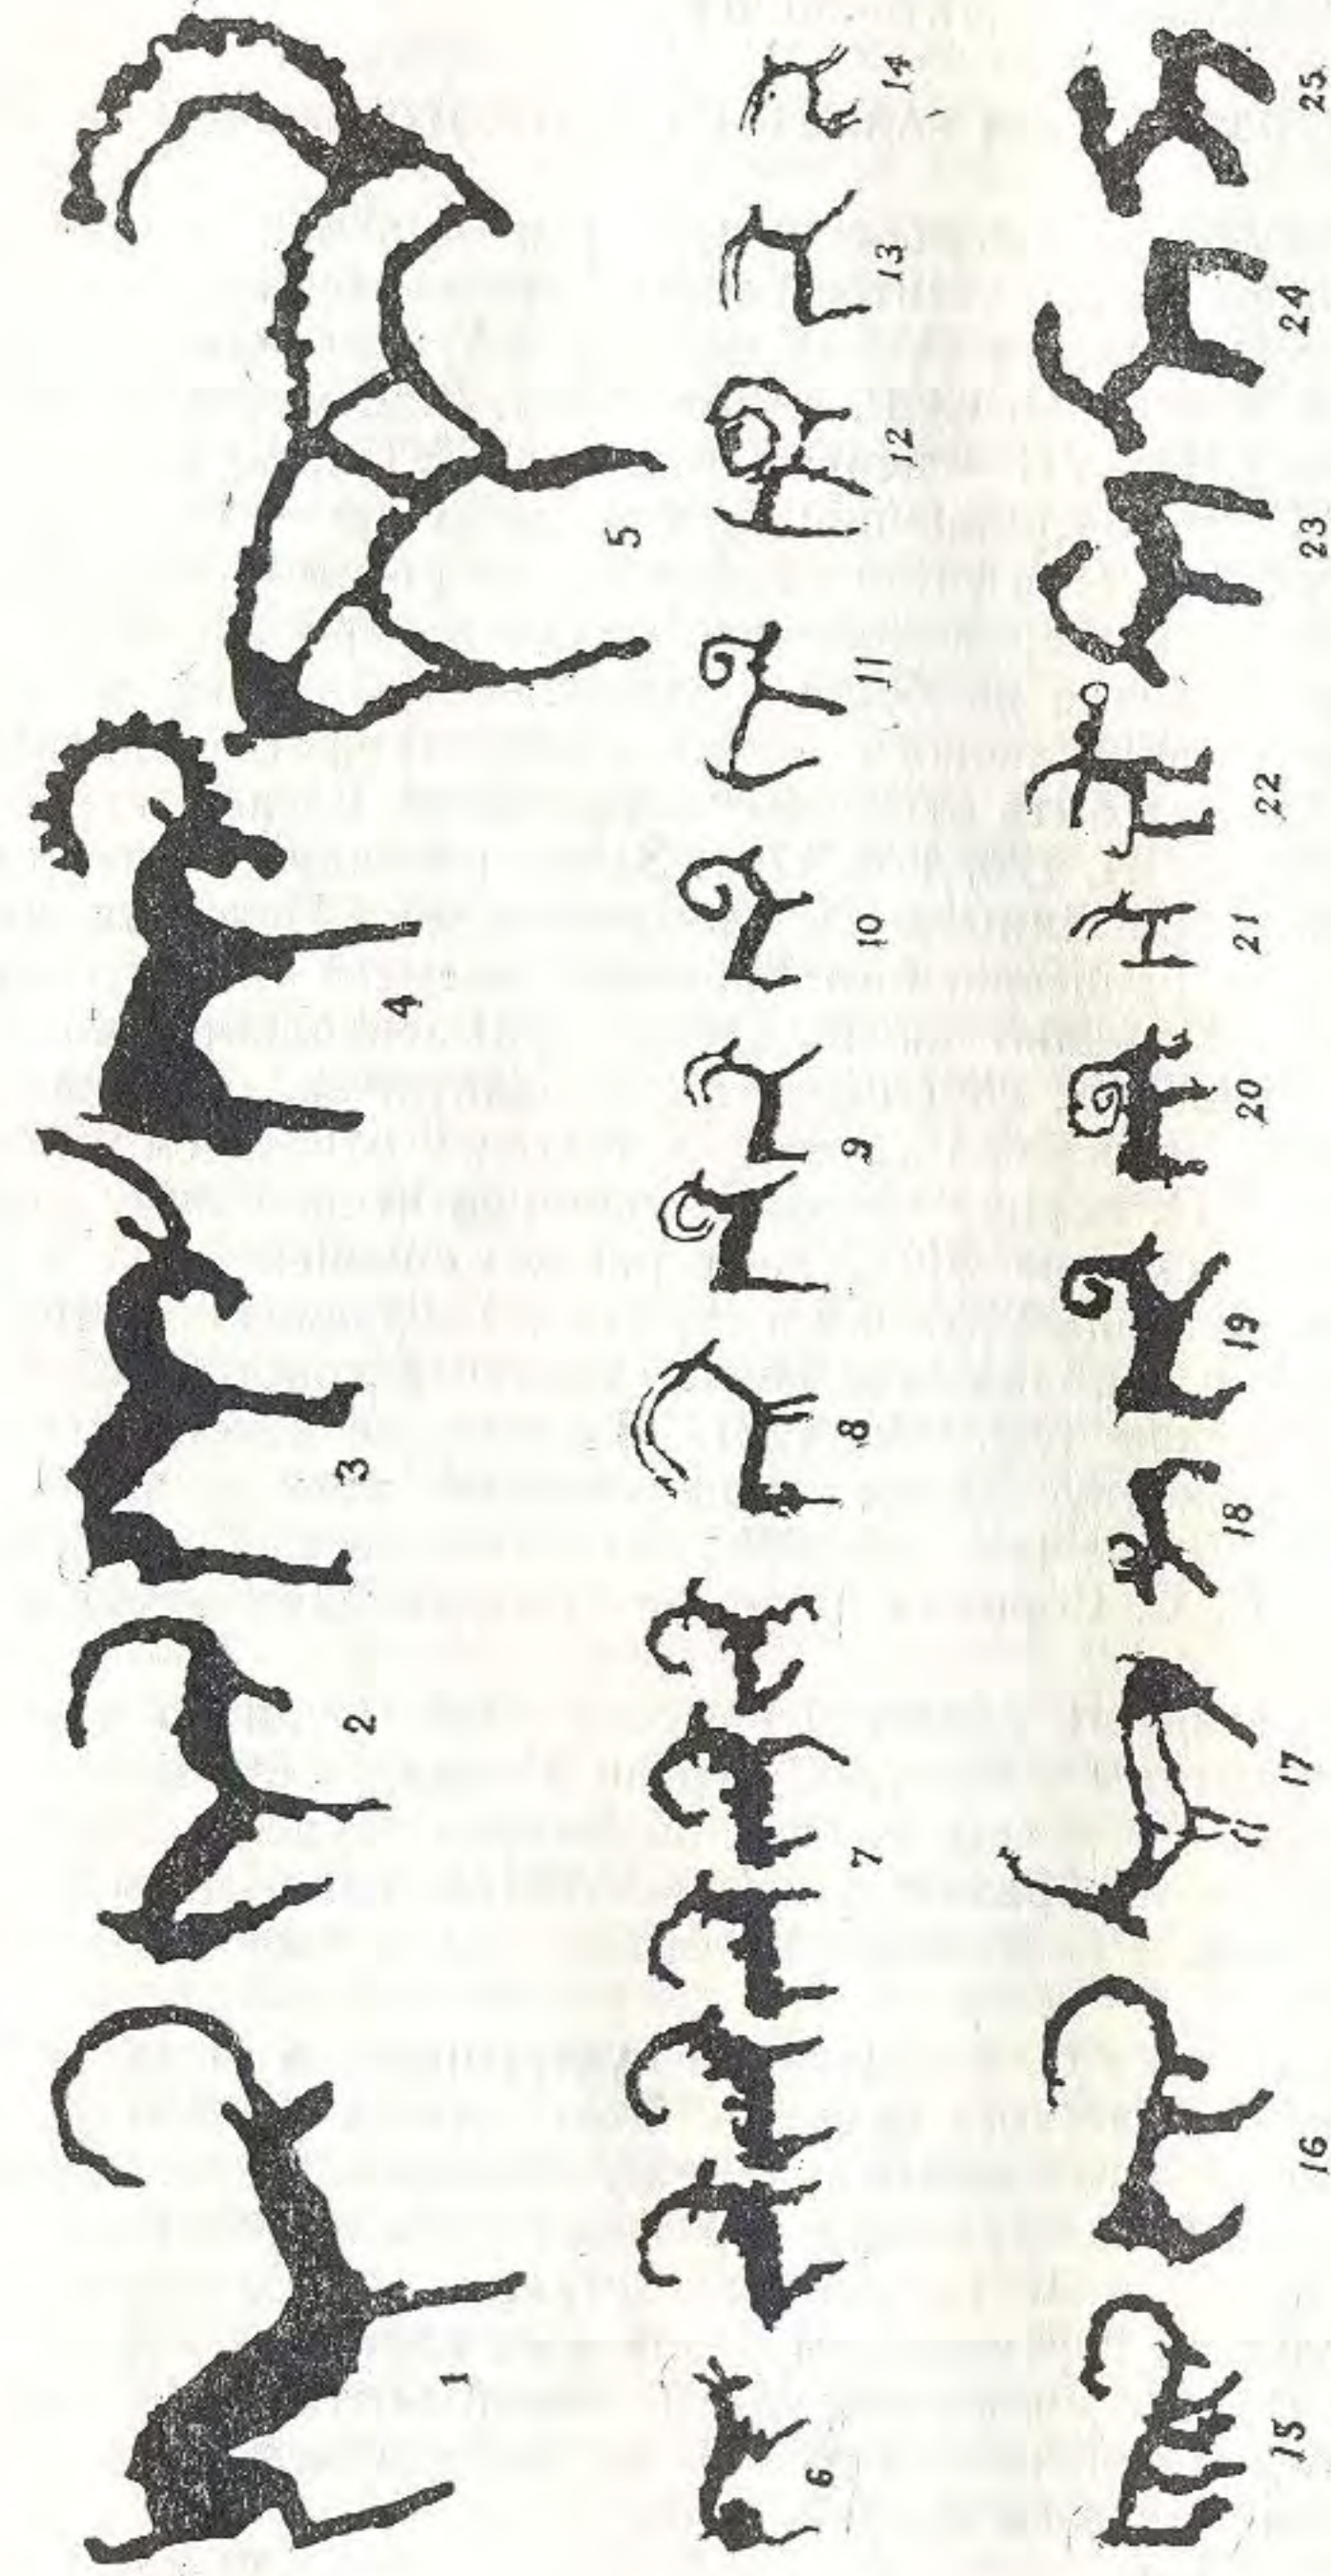 1 2 3 4 5
6 7 8 9 10 11 12 13 14
15 16 17 18 19 20 21 22 23 24 25